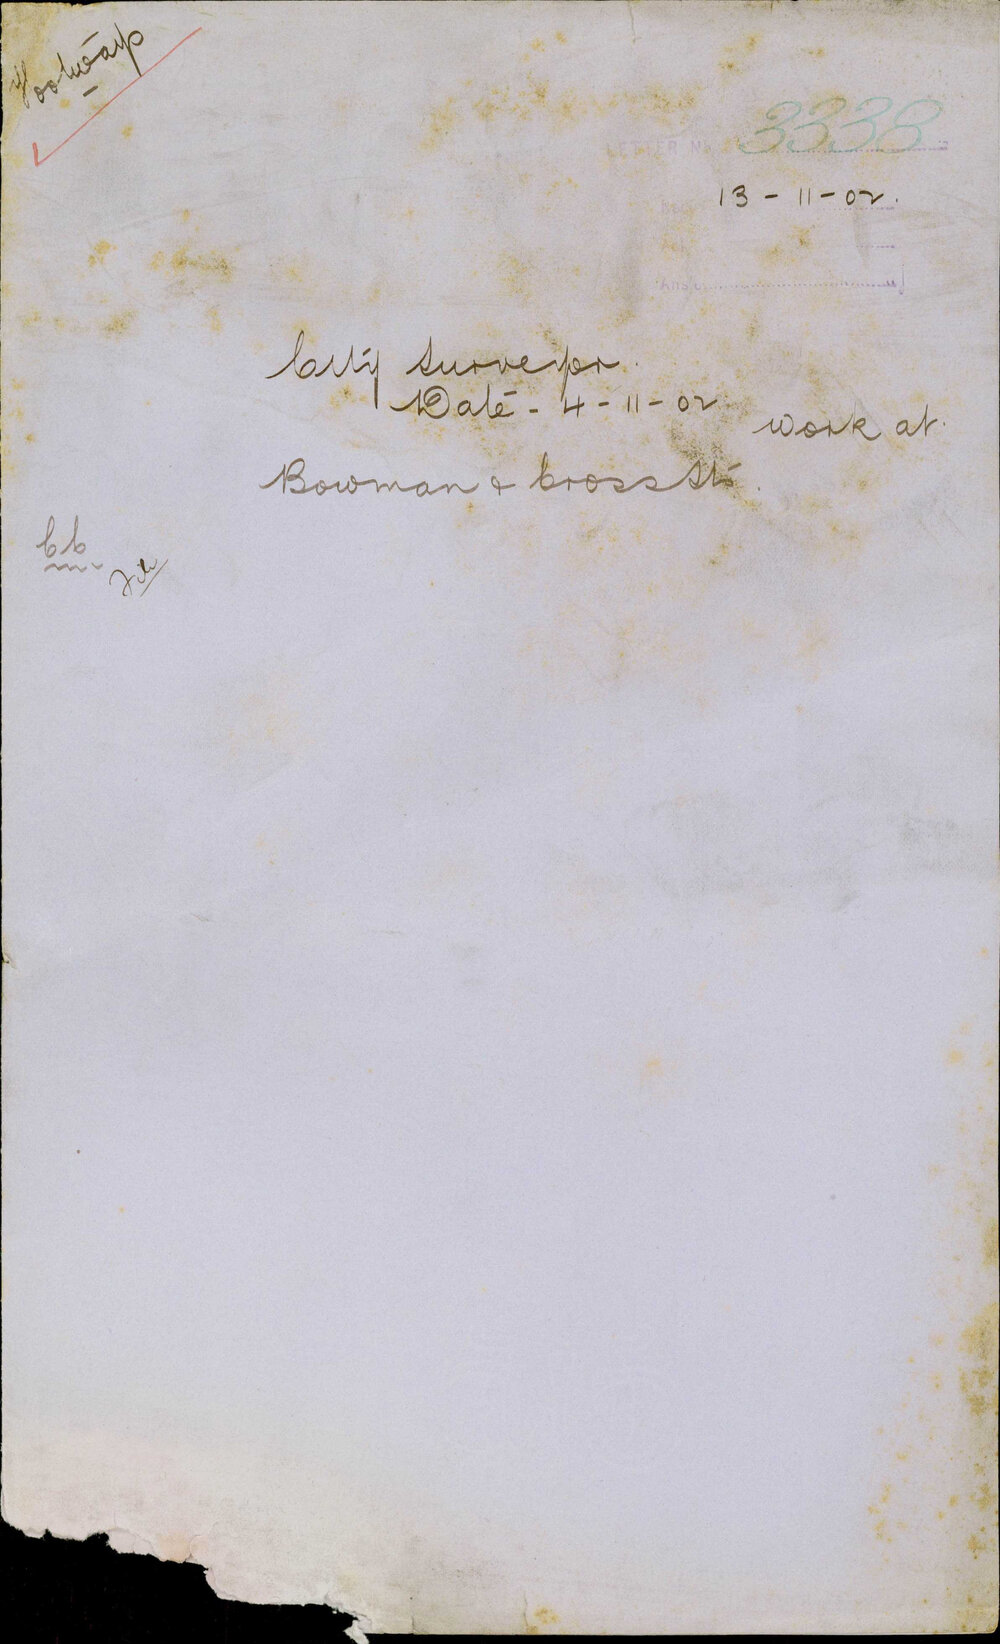 Footways
LETTER No. 3338
13-11-02.
Ans'd
City Surveyor.
Date - 4-11-02
work at
Bowman & Cross Sts.
CC
File